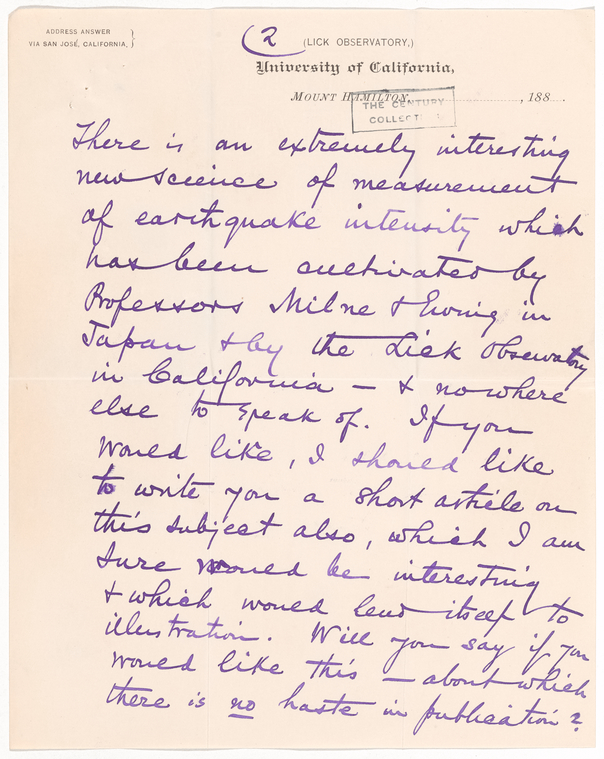 ADDRESS ANSWER
VIA SAN JOSÉ, CALIFORNIA,
2
(LICK OBSERVATORY,)
University of California,
MOUNT HAMILTON, , 188
THE CENTURY
COLLECTION
There is an extremely interesting
new science of measurement
of earthquake intensity which
has been cultivated by
Professors Milne & Ewing in
Japan & by the Lick Observatory
in California — & nowhere
else to speak of. If you
would like, I should like
to write you a short article on
this subject also, which I am
sure would be interesting
& which would lend itself to
illustration. Will you say if you
would like this — about which
there is no haste in publication?